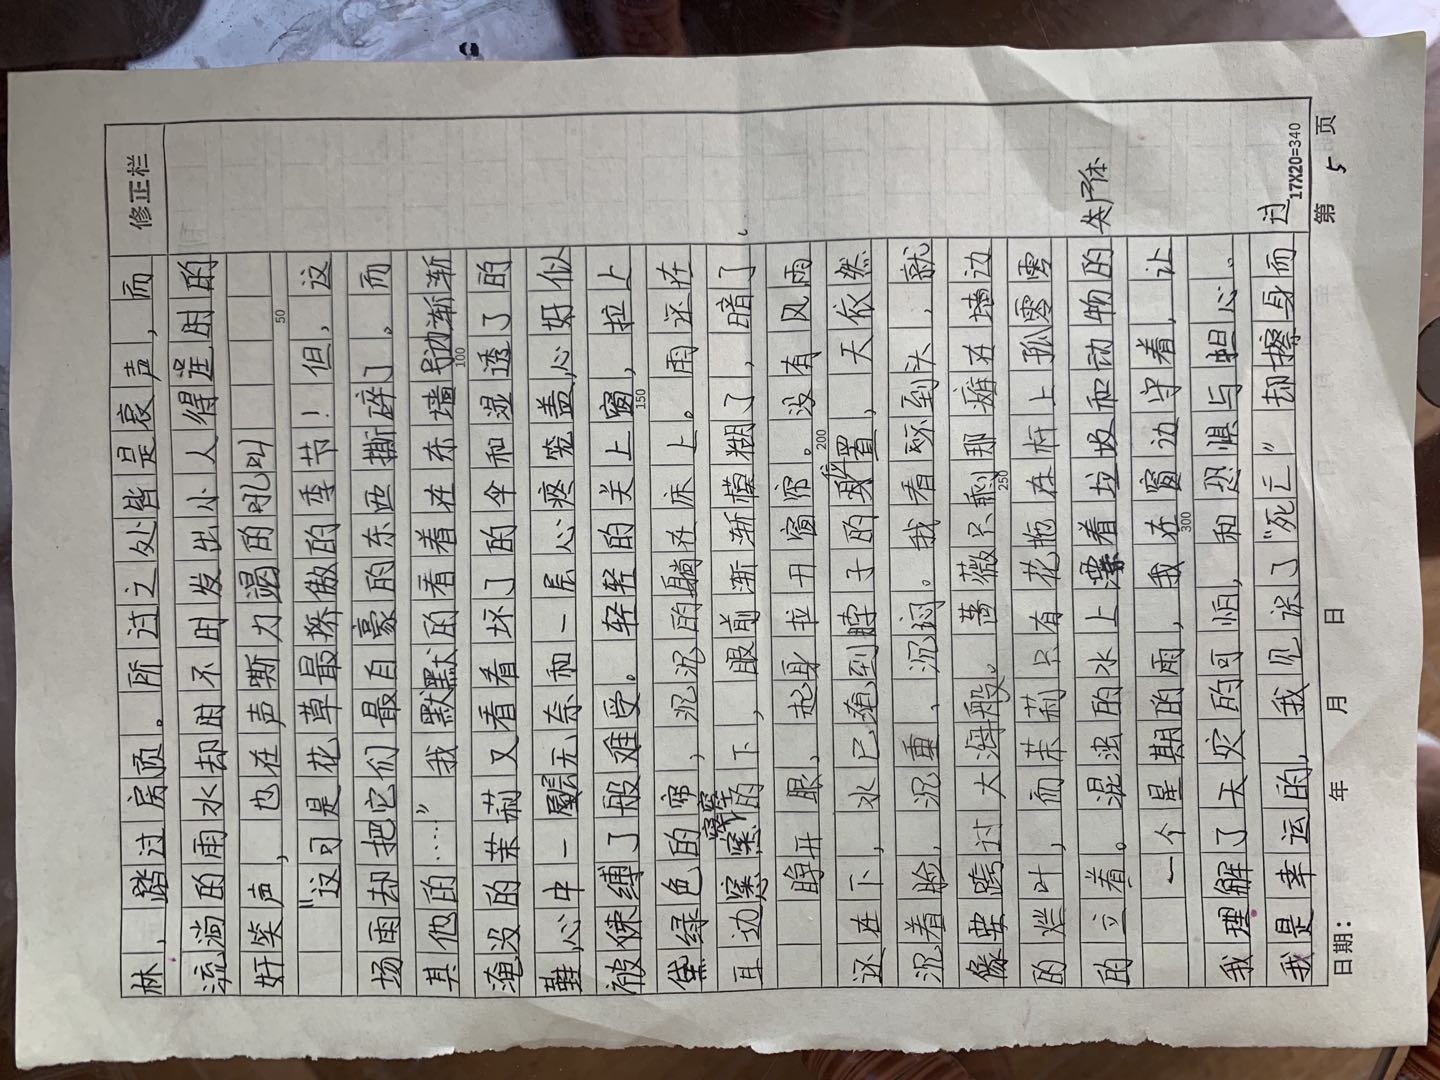 修正栏
林，踏过房顶。所过之处皆是哀声，而
流淌的雨水却时不时发出小人得逞时的
奸笑声，也在声嘶力竭的吼叫
50
“这可是花草最骄傲的季节！但，这
场雨却把它们最自豪的东西撕碎了。而
其他的……”我默默的看着在东墙边渐渐
100
淹没的茉莉又看看坏了的伞和湿透了的
鞋，心中一层无奈和一层心疼笼盖，心好似
被束缚了般难受。轻轻的关上窗，拉上
150
黛绿色的帘，沉沉的躺在床上。雨还在
耳边窸窣的下，眼前渐渐模糊了，暗了
睁开眼、起身拉开窗帘。没有风雨
200
还在下，水已淹到脖子的位置，天依然
沉着脸，沉重、沉闷。我看不到头，就
像要跨过大海般。蔷薇只剩那瘫在墙边
250
的烂叶，而茉莉只有花瓶在杆上孤零零
的立着。混浊的水上漂着垃圾和动物的尸体
一个星期的雨，我在窗边守着，让
300
我理解了天灾的可怕，和恐惧与担心。
我是幸运的，我见识了“死亡”却擦身而过
17X20=340
日期： 年 月 日 第 5 页